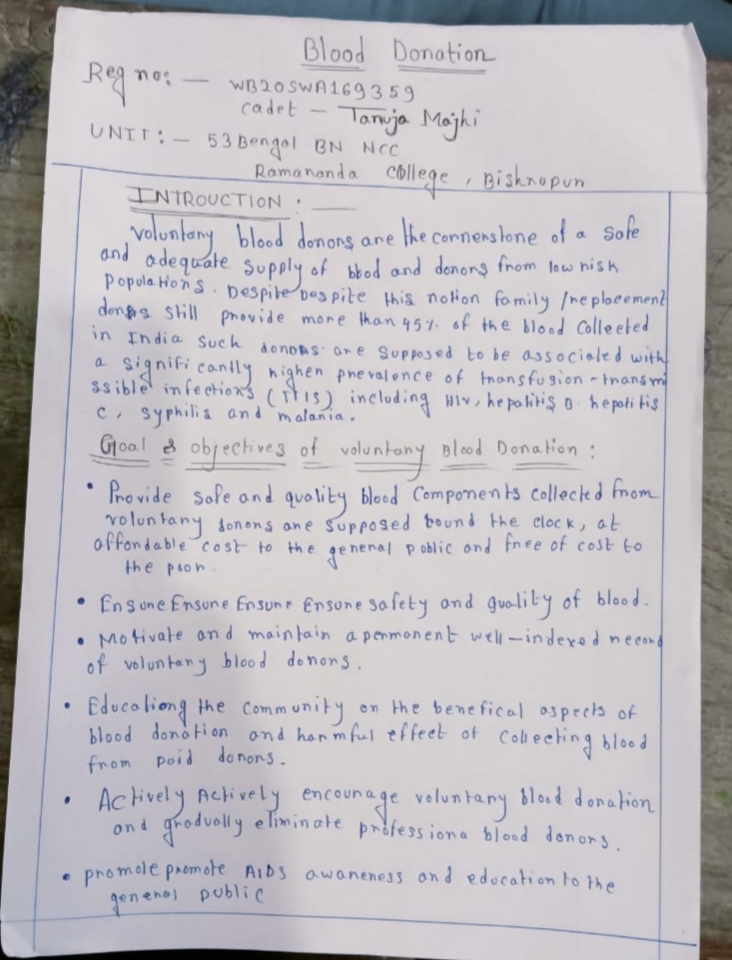 Blood Donation
Reg no: — WB20SWA169359
cadet — Tanuja Majhi
UNIT: — 53 Bengal BN NCC
Ramananda College, Bishnupun
INTROUCTION : —
voluntany blood donons are the connenstone of a safe
and adequate supply of blood and donons from low risk
populations. Despite Despite this notion family / neplacement
donors still provide more than 45% of the blood collected
in India such donons are supposed to be associated with
a significantly highen prevalence of tnansfusion - tnansmi
ssible infections (TTIS) including HIV, hepatitis B hepatitis
C, syphilis and malania.
Goal & objectives of voluntany Blood Donation :
• Provide safe and quality blood components collected from
voluntany donons are supposed bound the clock, at
affondable cost to the general public and free of cost to
the poon.
• Ensune Ensune Ensune Ensune safety and quality of blood.
• Motivate and maintain a penmanent well-indexed necond
of voluntany blood donons.
• Educationg the community on the benefical aspects of
blood donation and hanmful effect of collecting blood
from paid donons.
• Actively Actively encounage voluntany blood donation
and gnadually eliminate professiona blood donors.
• promote promote AIDS awaneness and education to the
genenal public